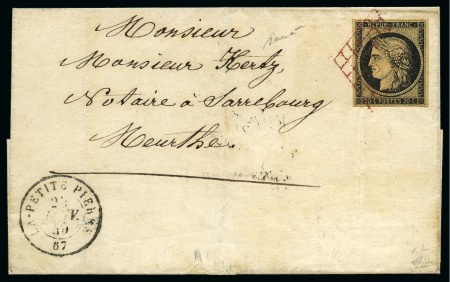 Monsieur
Monsieur Hertz
Notaire à Sarrebourg
Meurthe
REPUB. FRANC.
20 C POSTES 20 C
LA-PETITE PIERRE
49
67